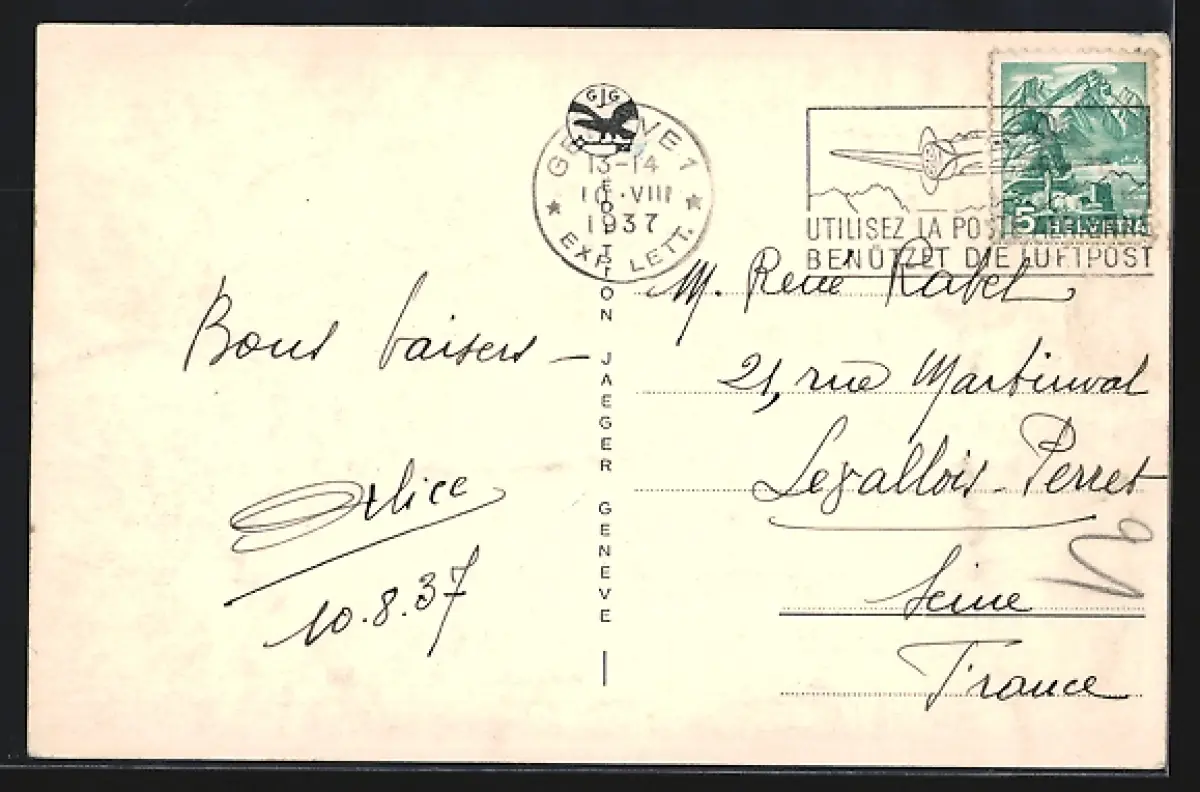 Bons baisers –
Alice
10.8.37
GJG
EDITION JAEGER GENEVE
GENÈVE 1
13-14
10·VIII
1937
EXP. LETT.
UTILISEZ LA POSTE AÉRIENNE
BENÜTZET DIE LUFTPOST
5 HELVETIA
M. René Rabet
21, rue Martinval
Levallois-Perret
Seine
France